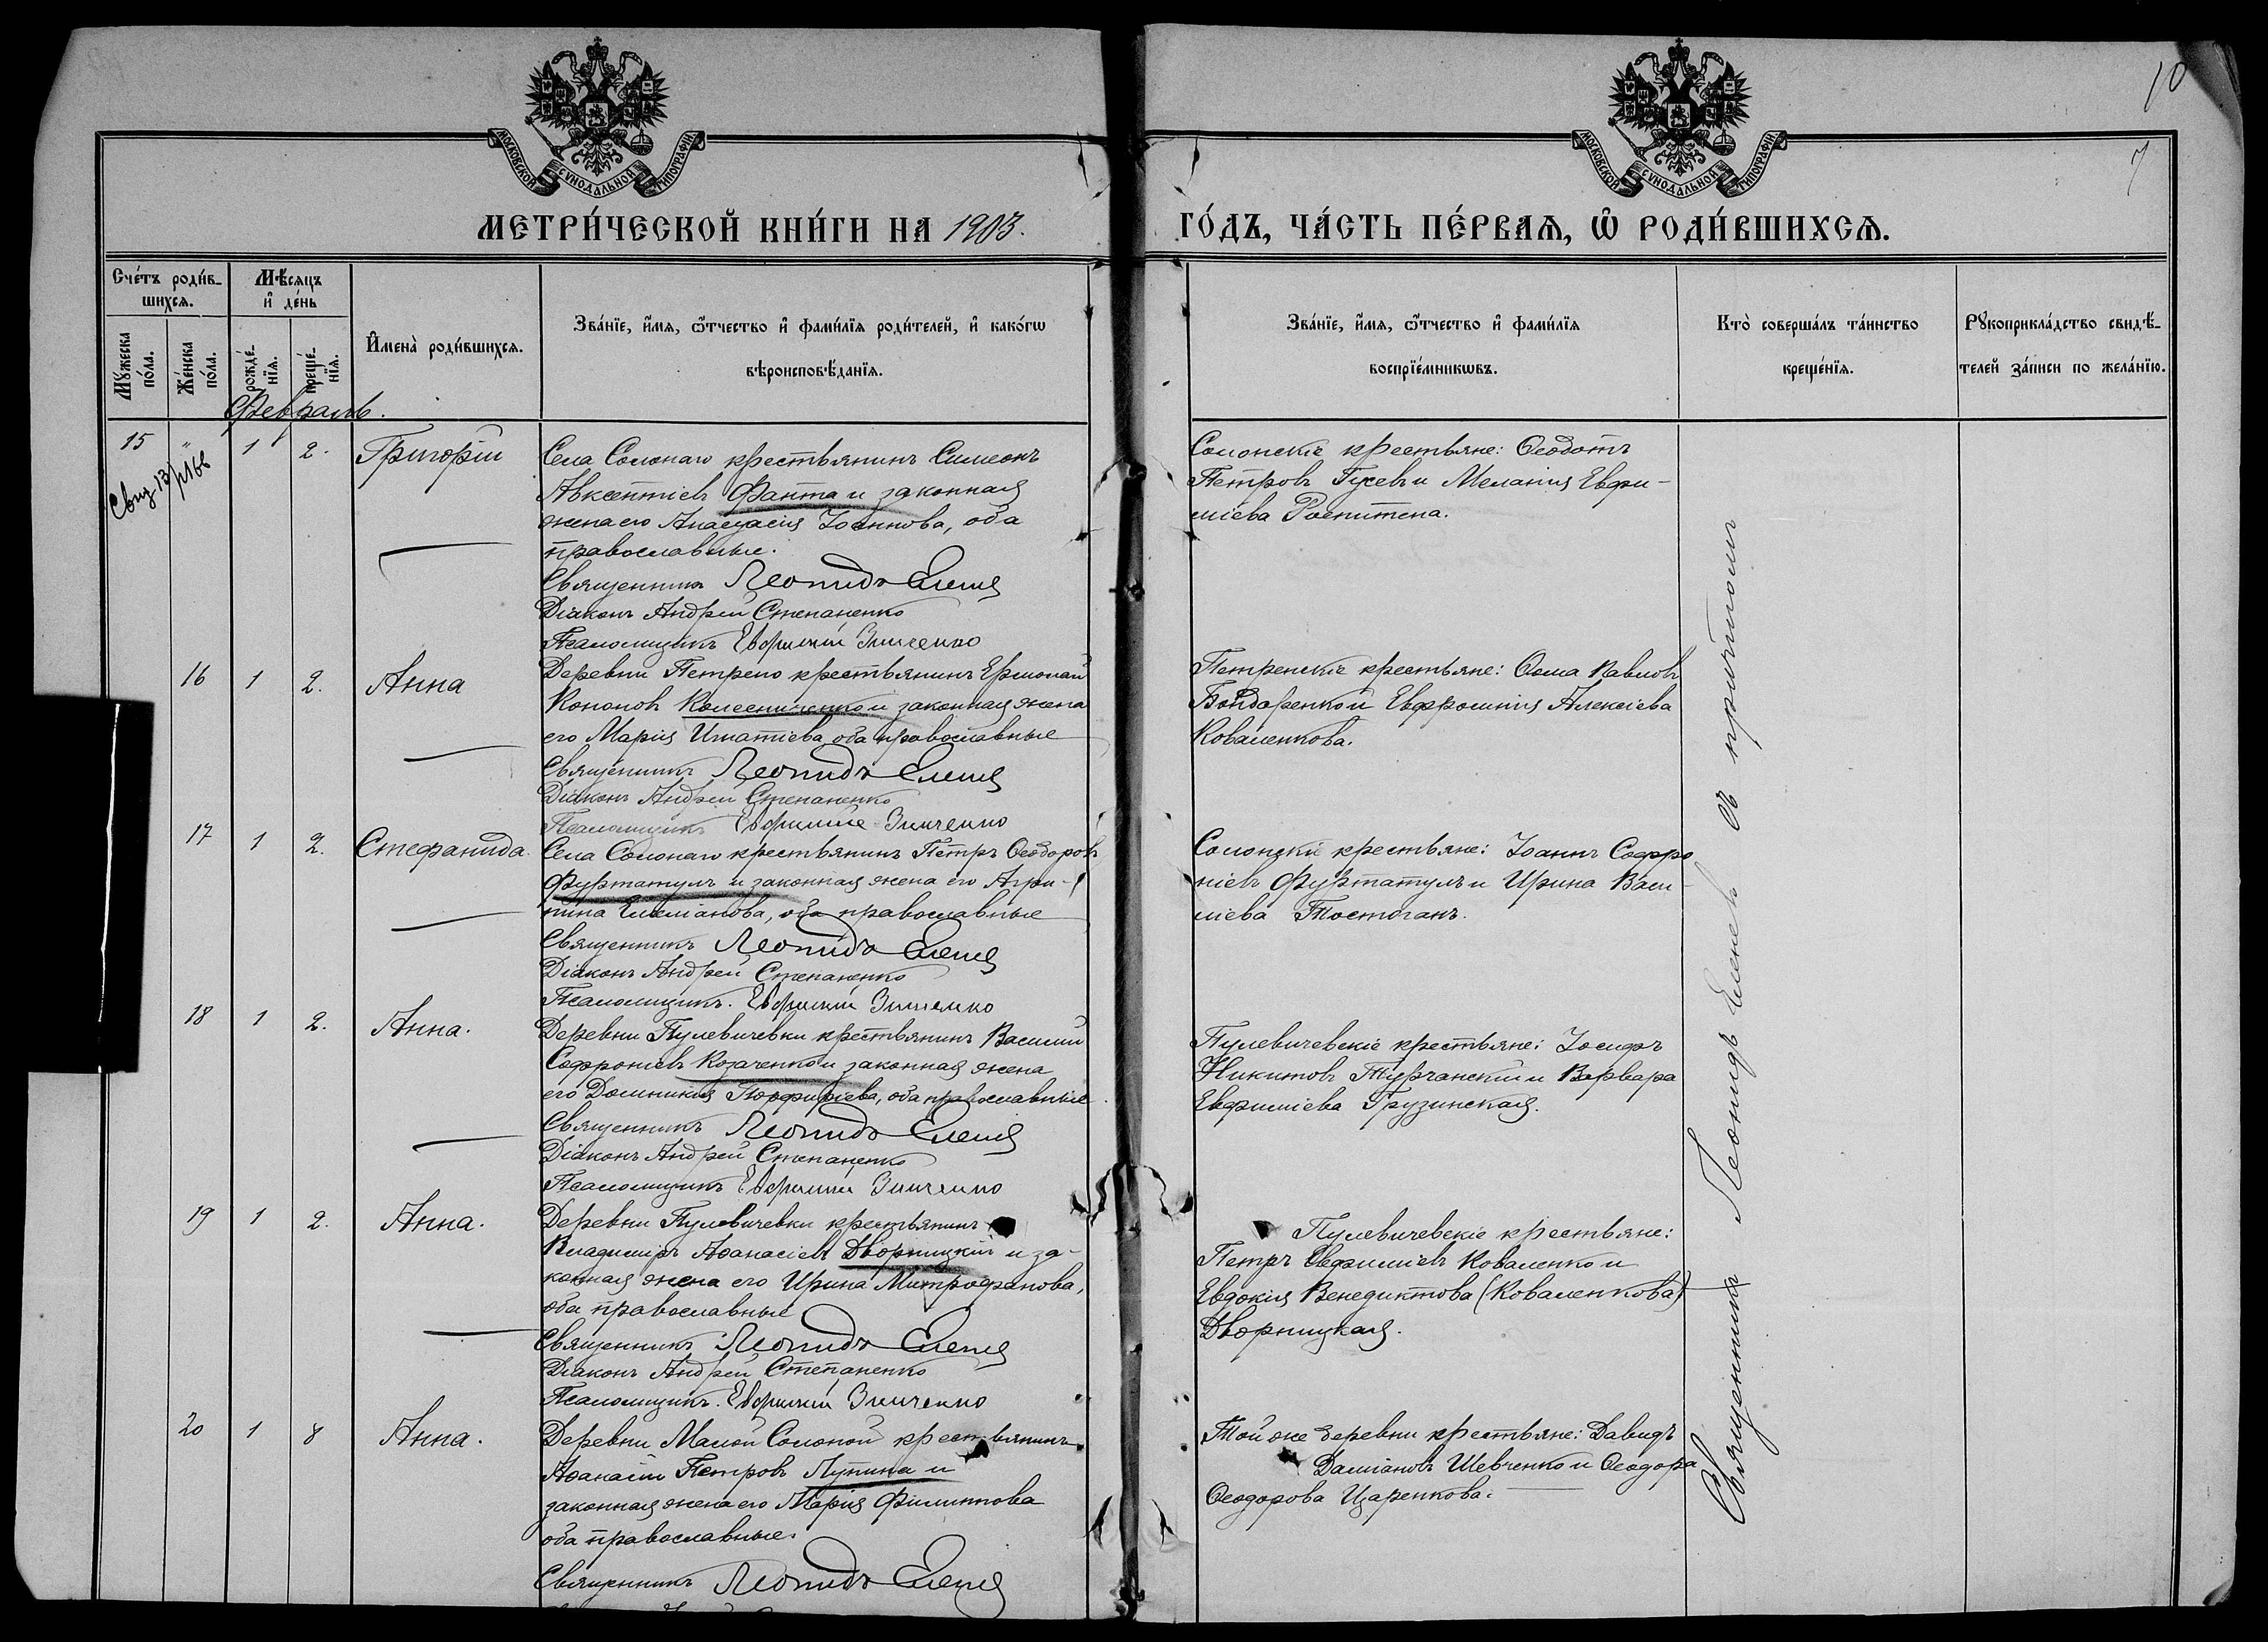 10
7
МОСКОВСКОЙ СѴНОДАЛЬНОЙ ТИПОГРАФІИ
МОСКОВСКОЙ СѴНОДАЛЬНОЙ ТИПОГРАФІИ
МЕТРИ́ЧЕСКОЙ КНИ́ГИ НА 1903.
ГО́ДЪ, ЧА́СТЬ ПЕ́РВАѦ, Ѽ РОДИ́ВШИХСѦ.
Сче́тъ роди́в-
шихсѧ.
Мꙋ́жеска по́ла.
Же́нска по́ла.
Мѣ́сѧцъ
и҆ де́нь
рожде́-нїѧ.
креще́-нїѧ.
И҆мена̀ роди́вшихсѧ.
Зва́нїе, и҆́мѧ, ѻ҆́тчество и҆ фами́лїѧ роди́телей, и҆ како́гѡ
вѣроисповѣ́данїѧ.
Зва́нїе, и҆́мѧ, ѻ҆́тчество и҆ фами́лїѧ
воспрїе́мникѡвъ.
Кто̀ соверша́лъ та́инство
креще́нїѧ.
Рꙋкоприкла́дство свидѣ́-
телей за́писи по жела́нїю.
Февраль.
15 " 1 2. Григорій
Села Солонаго крестьянинъ Симеонъ
Авксентіевъ Фанта и законная
жена его Анастасія Іоаннова, оба
православные.
Священникъ Леонидъ Еленев
Діаконъ Андрей Степаненко
Псаломщикъ Евфимій Зинченко
Солонскіе крестьяне: Ѳеодотъ
Петровъ Гусевъ и Меланія Евфи-
міева
16 1 2. Анна
Деревни Петрено крестьянинъ Ермолай
Кононовъ Колесниченко и законная жена
его Марія Игнатіева, оба православные
Священникъ Леонидъ Еленев
Діаконъ Андрей Степаненко
Псаломщикъ Евфимій Зинченко
Петренскіе крестьяне: Ѳома Павловъ
Бондаренко и Евфросинія Алексіева
Коваленкова.
17 1 2. Стефанида.
Села Солонаго крестьянинъ Петръ Ѳеодоровъ
Фуртатулъ и законная жена его Агри-
пина Емиліанова, оба православные
Священникъ Леонидъ Еленев
Діаконъ Андрей Степаненко
Псаломщикъ. Евфимій Зинченко
Солонскіе крестьяне: Іоаннъ Софро
ніевъ Фуртатулъ и Ирина Васи-
ліева Тостоганъ.
18 1 2. Анна.
Деревни Пулевичевки крестьянинъ Василій
Софроніевъ Козаченко и законная жена
его Домникія Порфиріева, оба православные.
Священникъ Леонидъ Еленев
Діаконъ Андрей Степаненко
Псаломщикъ Евфимій Зинченко
Пулевичевскіе крестьяне: Іосифъ
Никитовъ Турчанскій и Варвара
Евфиміева Грузинская.
19 1 2. Анна.
Деревни Пулевичевки крестьянинъ
Владиміръ Аѳанасіевъ Дворницкій и за-
конная жена его Ирина Митрофанова,
оба православные
Священникъ Леонидъ Еленев
Діаконъ Андрей Степаненко
Псаломщикъ. Евфимій Зинченко
Пулевичевскіе крестьяне:
Петръ Евфиміевъ Коваленко и
Евдокія Венедиктова (Коваленкова)
Дворницкая.
20 1 8 Анна.
Деревни Малой Солоной крестьянинъ
Аѳанасій Петровъ Лупина и
законная жена его Марія Филиппова
оба православные.
Священникъ Леонидъ Еленев
Той же деревни крестьяне: Давидъ
Даміановъ Шевченко и Ѳеодора
Ѳеодорова Царенкова.
Священникъ Леонидъ Еленевъ съ причтомъ